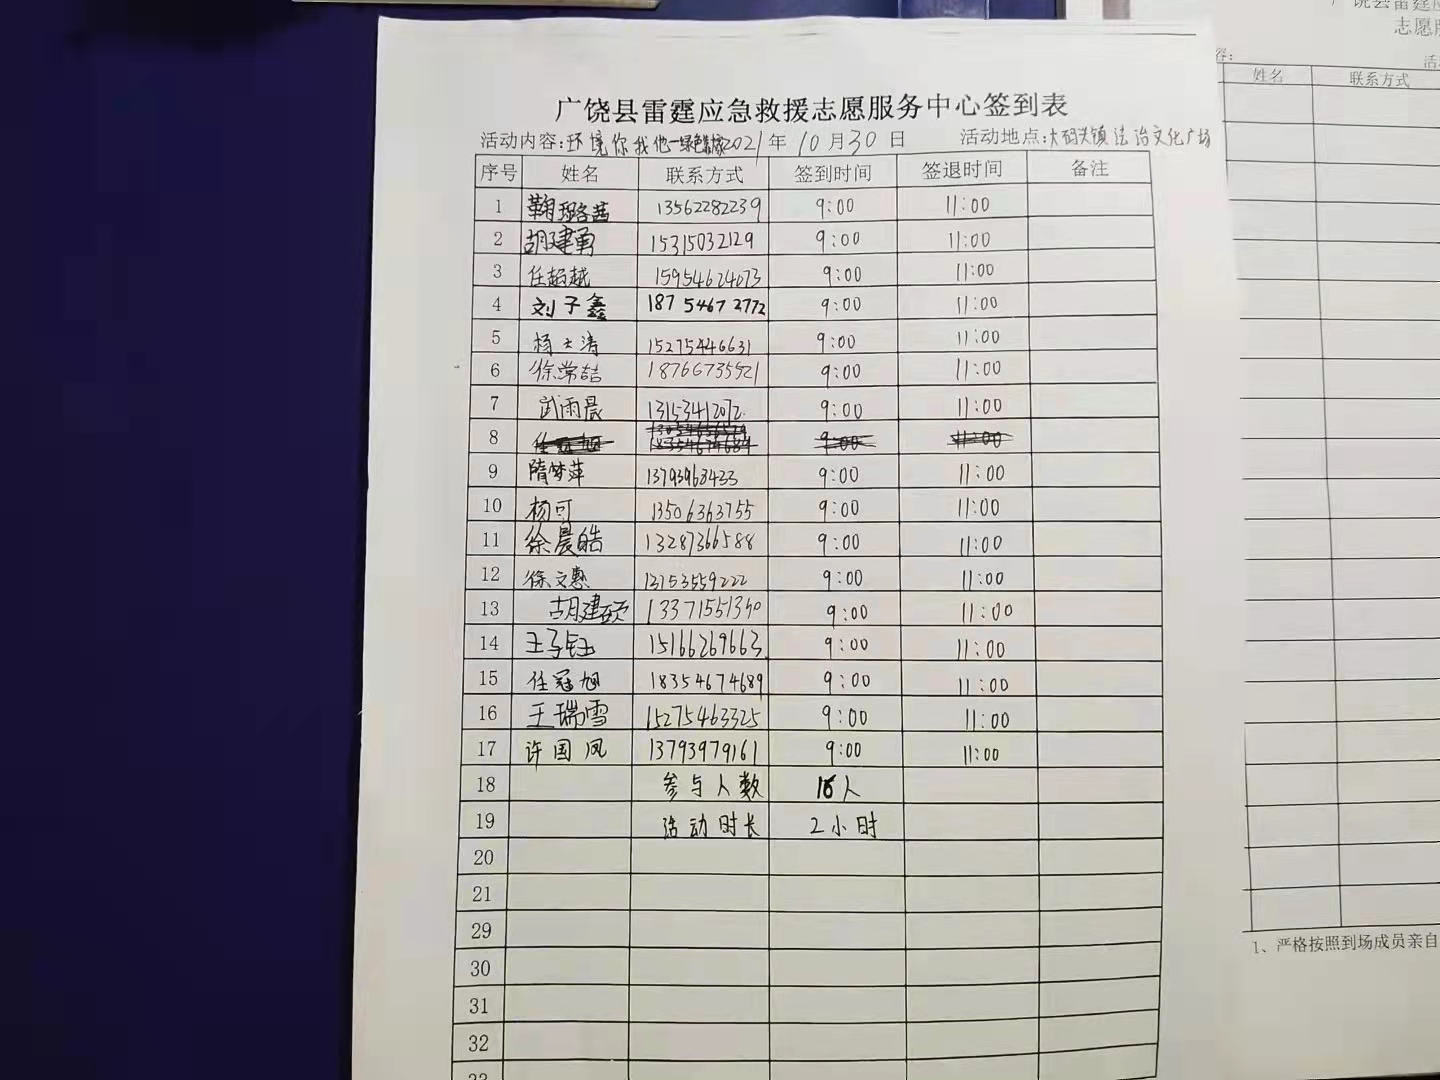 广饶县雷霆应急救援志愿服务中心签到表
活动内容:环境你我他 2021年10月30日 活动地点:大码头镇法治文化广场
序号 姓名 联系方式 签到时间 签退时间 备注
1 鞠璐茜 13562282239 9:00 11:00
2 胡建勇 15315032129 9:00 11:00
3 任超越 15954624073 9:00 11:00
4 刘子鑫 18754672772 9:00 11:00
5 杨士涛 15275446631 9:00 11:00
6 徐常喆 18766735521 9:00 11:00
7 武雨晨 13153412072 9:00 11:00
8 9:00 11:00
9 隋梦萍 13793968433 9:00 11:00
10 杨可 13506363755 9:00 11:00
11 徐晨皓 13287366588 9:00 11:00
12 徐文惠 13153559222 9:00 11:00
13 胡建硕 13371551340 9:00 11:00
14 王子钰 15166269663 9:00 11:00
15 任冠旭 18354674689 9:00 11:00
16 王瑞雪 15275463325 9:00 11:00
17 许国凤 13793979161 9:00 11:00
18 参与人数 16人
19 活动时长 2小时
20
21
29
30
31
32
33
广饶县雷霆应
志愿服
容: 活
姓名 联系方式
1、严格按照到场成员亲自